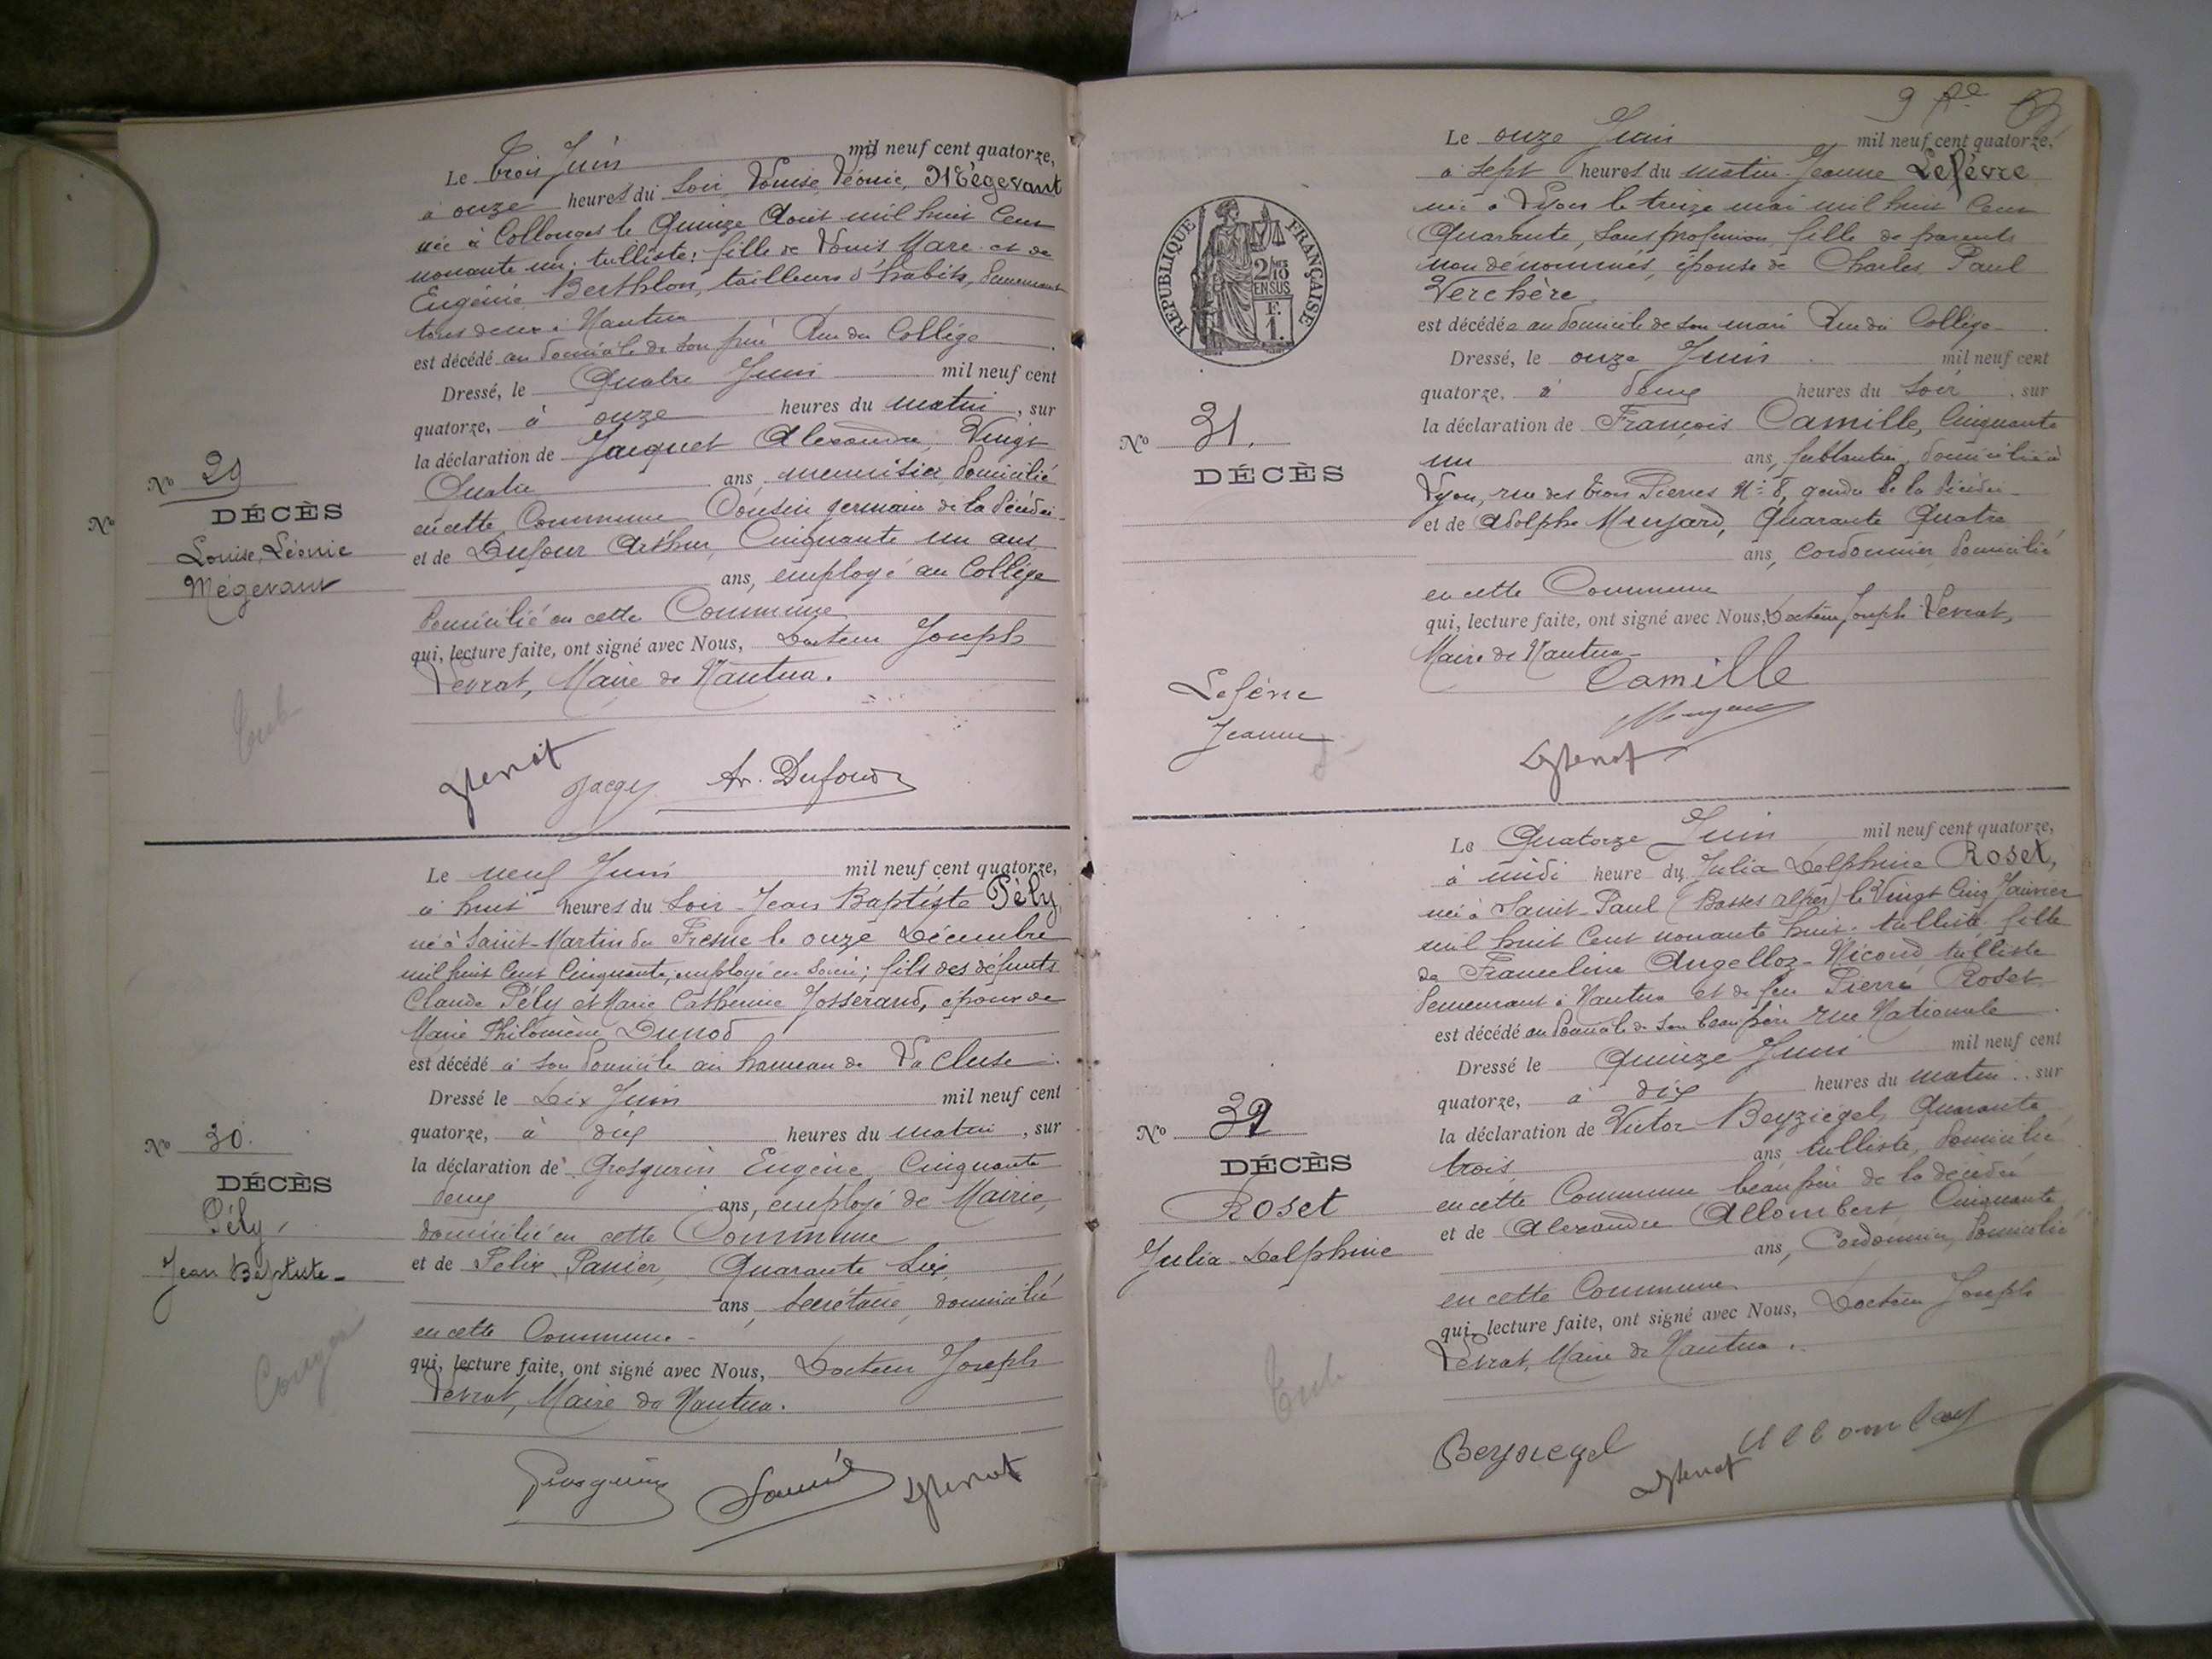 Le trois Juin mil neuf cent quatorze,
à onze heures du soir, Louise, Léonie, Mégevant
née à Collonges le Quinze Août mil huit Cent
nonante un; tulliste; fille de Louis Marc et de
Eugénie Berthlon, tailleurs d'habits, demeurant
tous deux à Nantua
est décédé au domicile de son père Rue du Collège
Dressé, le Quatre Juin mil neuf cent
quatorze, à onze heures du matin, sur
la déclaration de Jacquet Alexandre, Vingt
Quatre ans, menuisier, domicilié
en cette Commune Cousin germain de la décédée
et de Dufour Arthur, Cinquante un ans
ans, employé au Collège
domicilié en cette Commune
qui, lecture faite, ont signé avec Nous, Docteur Joseph
Levrat, Maire de Nantua.
Nº 29
DÉCÈS
Nº
Louise, Léonie
Mégevant
Ar. Dufour
Le neuf Juin mil neuf cent quatorze,
à huit heures du soir Jean Baptiste Pély,
né à Saint-Martin du Fresne le onze Décembre
mil huit Cent Cinquante, employé en soierie; fils des défunts
Claude Pély et Marie Catherine Josserand, époux de
Marie Philomène Dunod
est décédé à son domicile au hameau de La Cluse
Dressé le Dix Juin mil neuf cent
quatorze, à dix heures du matin, sur
la déclaration de Grosgurin Eugène, Cinquante
deux ans, employé de Mairie,
domicilié en cette Commune
et de Félix Panier, Quarante Six
ans, Secrétaire, domicilié
en cette Commune
qui, lecture faite, ont signé avec Nous, Docteur Joseph
Levrat, Maire de Nantua.
Nº 30.
DÉCÈS
Pély,
Jean Baptiste
Grosgurin
Le onze Juin mil neuf cent quatorze,
à sept heures du matin Jeanne Lefèvre
née à Lyon le treize mai mil huit Cent
Quarante, sans profession, fille de parents
non dénommés, épouse de Charles Paul
Verchère,
est décédée au domicile de son mari Rue du Collège
Dressé, le onze Juin mil neuf cent
quatorze, à deux heures du soir, sur
la déclaration de François Camille, Cinquante
un ans, ferblantier, domicilié à
Lyon, rue des trois Pierres Nº 8, gendre de la décédée
et de Adolphe Munjard, Quarante Quatre
ans, Cordonnier, domicilié
en cette Commune
qui, lecture faite, ont signé avec Nous, Docteur Joseph Levrat,
Maire de Nantua
RÉPUBLIQUE FRANÇAISE
2/10 EN SUS
F. 1.
Nº 31.
DÉCÈS
Lefèvre
Jeanne
Camille
Le Quatorze Juin mil neuf cent quatorze,
à midi heure du Julia Delphine Roset,
née à Saint-Paul (Basses Alpes) le Vingt Cinq Janvier
mil huit Cent nonante huit; tulliste fille
de Franceline Angelloz-Nicoud, tulliste
demeurant à Nantua et de feu Pierre Roset
est décédé au domicile de son beau père rue Nationale
Dressé le Quinze Juin mil neuf cent
quatorze, à dix heures du matin, sur
la déclaration de Victor Beyziegel, Quarante
trois ans tulliste, domicilié
en cette Commune beau père de la décédée
et de Alexandre Allombert, Cinquante
ans, Cordonnier, domicilié
en cette Commune
qui, lecture faite, ont signé avec Nous, Docteur Joseph
Levrat, Maire de Nantua.
Nº 32
DÉCÈS
Roset
Julia Delphine
Beyziegel